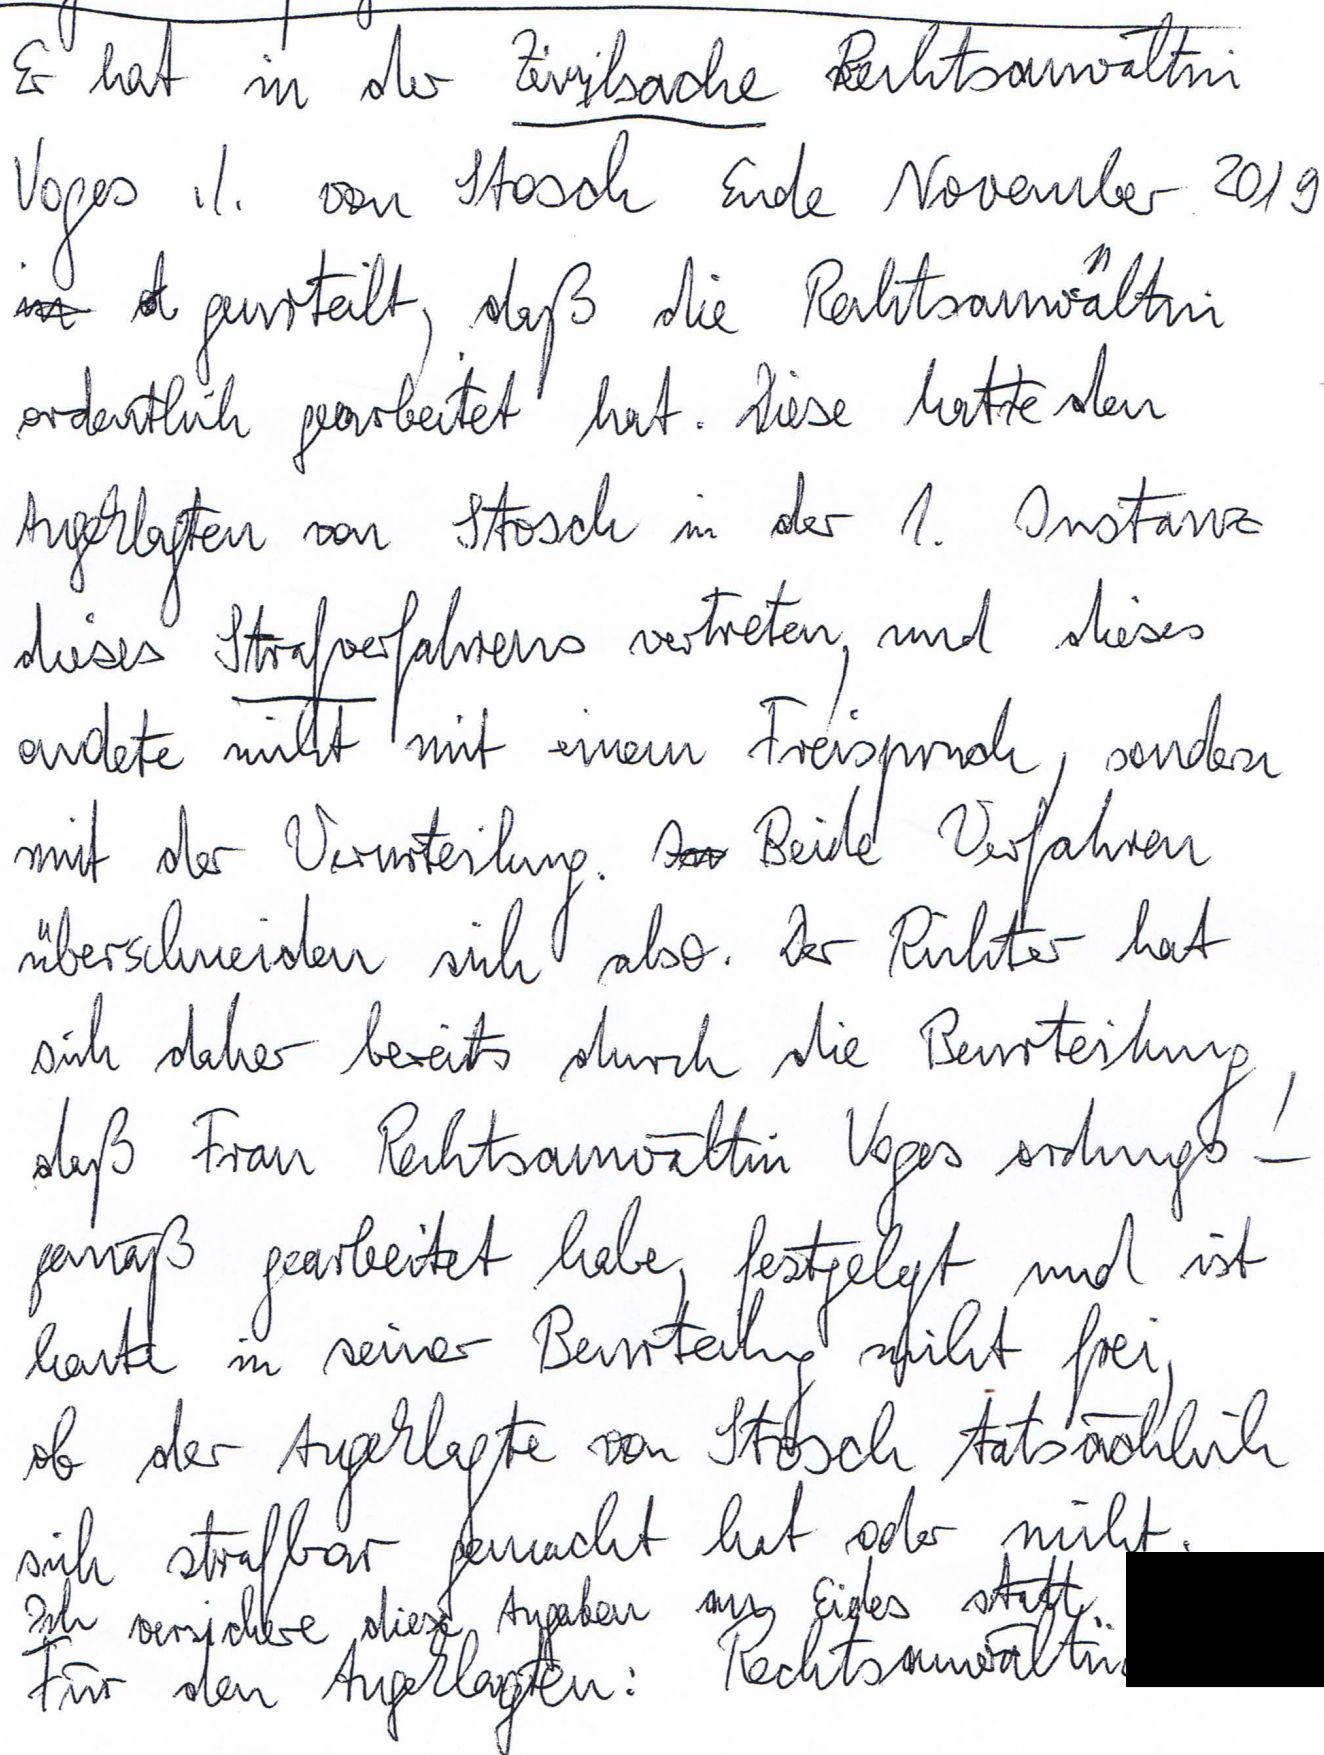 Er hat in der Zivilsache Rechtsanwältin
Voges ./. von Stosch Ende November 2019
geurteilt, daß die Rechtsanwältin
ordentlich gearbeitet hat. Diese hatte den
Angeklagten von Stosch in der 1. Instanz
dieses Strafverfahrens vertreten, und dieses
endete nicht mit einem Freispruch, sondern
mit der Verurteilung. Beide Verfahren
überschneiden sich also. Der Richter hat
sich daher bereits durch die Beurteilung,
daß Frau Rechtsanwältin Voges ordungs-
gemäß gearbeitet habe, festgelegt und ist
heute in seiner Beurteilung nicht frei,
ob der Angeklagte von Stosch tatsächlich
sich strafbar gemacht hat oder nicht.
Ich versichere diese Angaben an Eides statt.
Für den Angeklagten: Rechtsanwältin